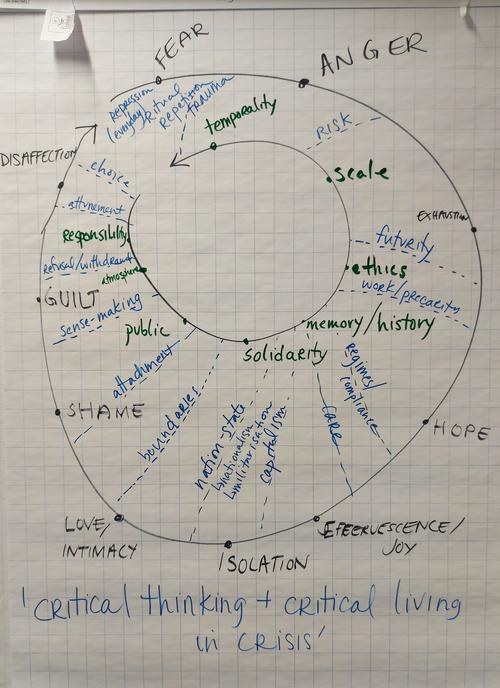 FEAR
ANGER
REPRESSION
(everyday) RITUAL
REPETITION
TRAUMA
temporality
RISK
scale
DISAFFECTION
choice
EXHAUSTION
attunement
futurity
responsibility
refusal/withdrawal
atmosphere
ethics
work/precarity
GUILT
sense-making
public
memory/history
solidarity
attachment
regimes/
compliance
boundaries
nation-state
↳nationalism
↳militarisation
capitalism
care
SHAME
HOPE
LOVE/
INTIMACY
EFFERVESCENCE/
JOY
ISOLATION
'critical thinking + critical living
in CRISIS'